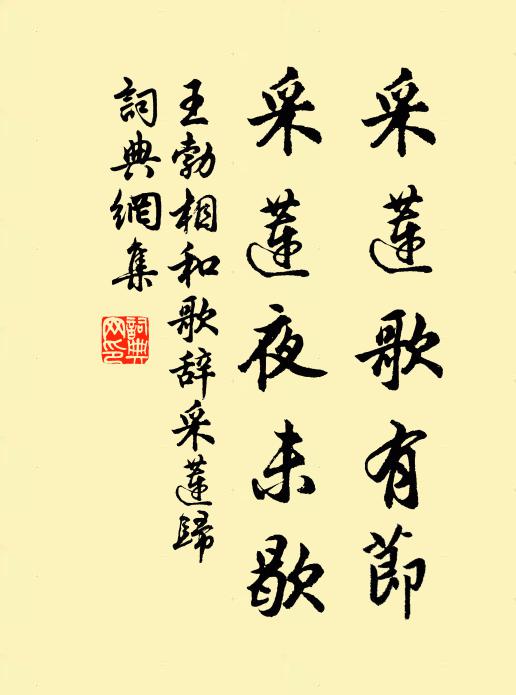 采蓮歌有節
采蓮夜未歇
王勃相和歌辞采蓮歸
詞典網集
詞典網印